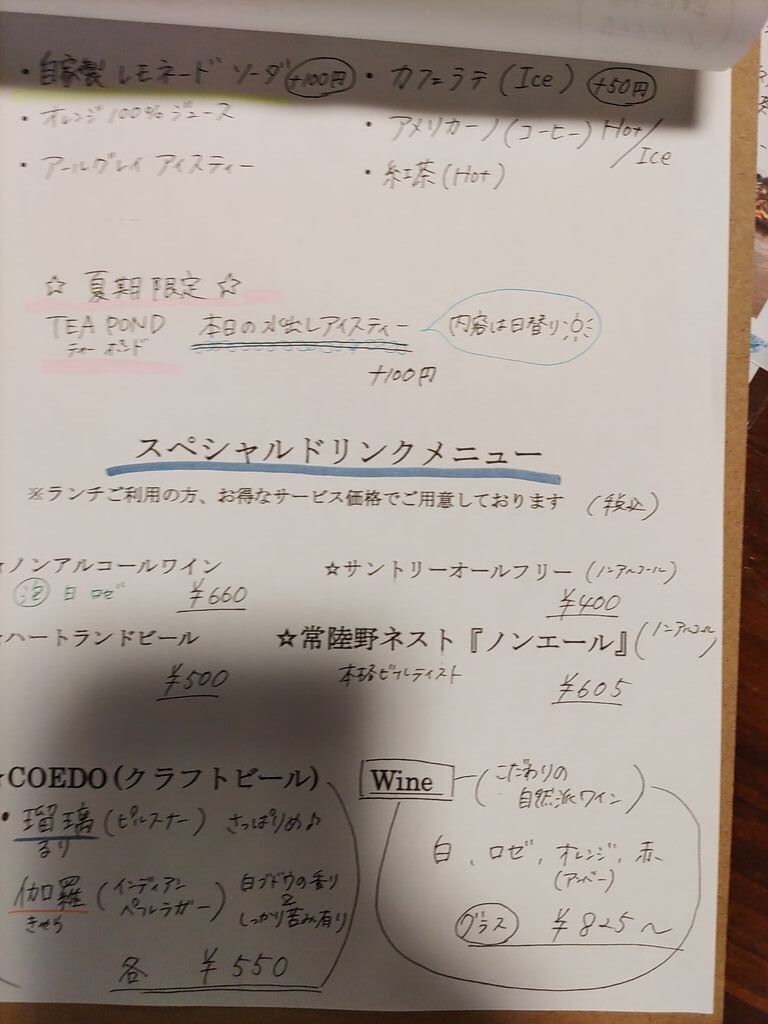 ・自家製 レモネード ソーダ +100円
・オレンジ100%ジュース
・アールグレイ アイスティー
・カフェラテ (Ice) +50円
・アメリカーノ (コーヒー) Hot/Ice
・紅茶 (Hot)
☆ 夏期限定 ☆
TEA POND 本日の水出しアイスティー
ティー ポンド
内容は日替り
+100円
スペシャルドリンクメニュー
※ランチご利用の方、お得なサービス価格でご用意しております (税込)
☆ノンアルコールワイン
泡 白 ロゼ ¥660
☆サントリーオールフリー (ノンアルコール)
¥400
☆ハートランドビール
¥500
☆常陸野ネスト『ノンエール』(ノンアルコール)
本格ビールテイスト
¥605
☆COEDO(クラフトビール)
・瑠璃 (ピルスナー) さっぱりめ♪
るり
・伽羅 (インディアンペールラガー) 白ブドウの香り
きゃら
しっかり苦み有り
各 ¥550
Wine (こだわりの
自然派ワイン)
白、ロゼ、オレンジ、赤
(アンバー)
グラス ¥825~